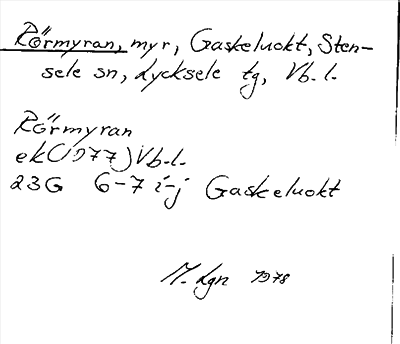 Rörmyran, myr, Gaskeluokt, Sten-
sele sn, Lycksele tg, Vb.l.
Rörmyran
ek (1977) Vb.l.
23G 6-7 i-j Gaskeluokt
M. Lgn 1978